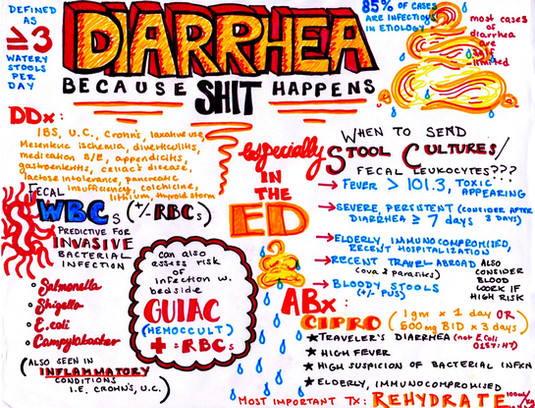 DEFINED
AS
≥3
WATERY
STOOLS
PER
DAY
DIARRHEA
BECAUSE SHIT HAPPENS
85% OF CASES
ARE INFECTIOUS
IN ETIOLOGY
most cases
of
diarrhea
are
self
limited
DDx:
IBS, U.C., Crohn's, laxative use,
Mesenteric ischemia, diverticulitis,
medication S/E, appendicitis,
gastroenteritis, celiac disease,
lactose intolerance, pancreatic
insufficiency, colchicine,
lithium, thyroid storm
especially
IN
THE
ED
FECAL
WBCs (+/- RBCs)
PREDICTIVE FOR
INVASIVE
BACTERIAL
INFECTION
Salmonella
Shigella
E.coli
Campylobacter
(ALSO SEEN IN
INFLAMMATORY
CONDITIONS
I.E. CROHN'S, U.C.)
can also
assess risk
of
infection w.
bedside
GUIAC
(HEMOCCULT)
+ = RBCs
WHEN TO SEND
STOOL CULTURES/
FECAL LEUKOCYTES???
→ FEVER > 101.3, TOXIC
APPEARING
→ SEVERE, PERSISTENT (CONSIDER AFTER
DIARRHEA ≥ 7 days 3 DAYS)
→ ELDERLY, IMMUNOCOMPROMISED,
RECENT HOSPITALIZATION
→ RECENT TRAVEL ABROAD
(ova & parasites)
→ BLOODY STOOLS
(+/- PUS)
ALSO
CONSIDER
BLOOD
WORK IF
HIGH RISK
ABx:
CIPRO (1gm x 1 day OR
500mg BID x 3 days)
★ TRAVELER'S DIARRHEA (not E.Coli
0157:H7)
★ HIGH FEVER
★ HIGH SUSPICION OF BACTERIAL INFXN
★ ELDERLY, IMMUNOCOMPROMISED
MOST IMPORTANT TX: REHYDRATE